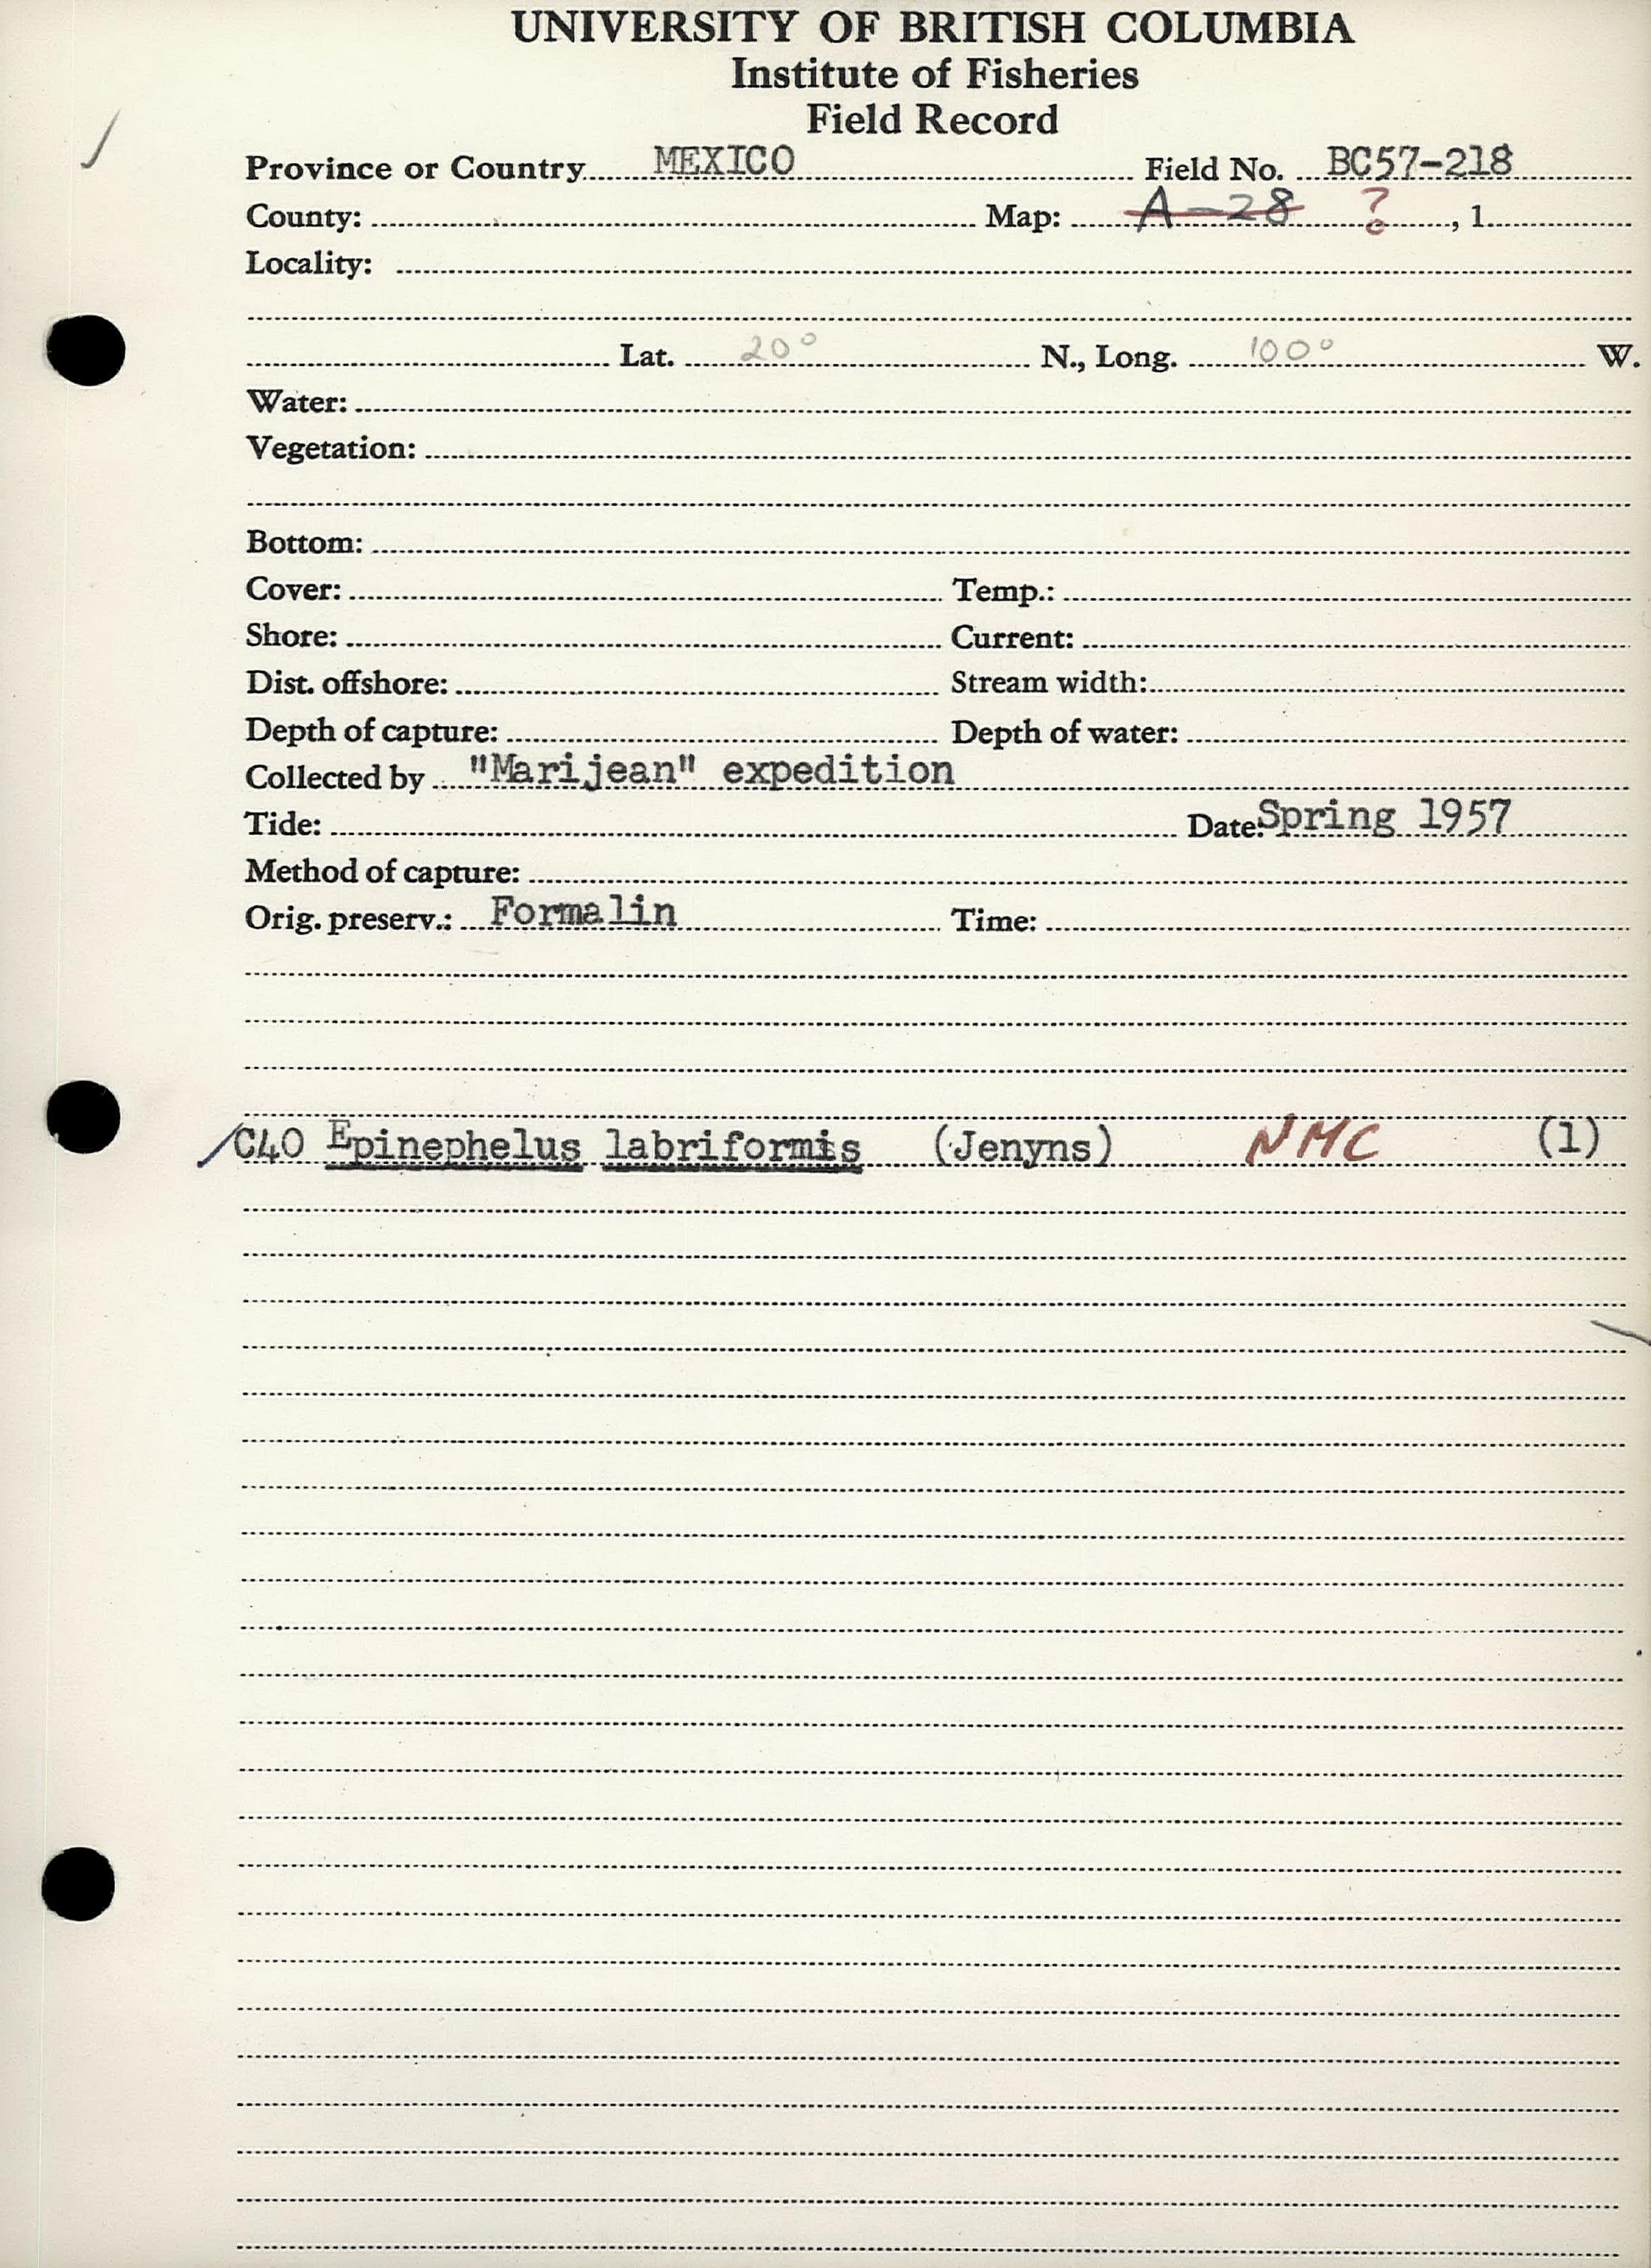 UNIVERSITY OF BRITISH COLUMBIA
Institute of Fisheries
Field Record
Province or Country MEXICO Field No. BC57-218
County: Map: A-28 ? , 1
Locality:
Lat. 20° N., Long. 100° W.
Water:
Vegetation:
Bottom:
Cover: Temp.:
Shore: Current:
Dist. offshore: Stream width:
Depth of capture: Depth of water:
Collected by "Marijean" expedition
Tide: Date: Spring 1957
Method of capture:
Orig. preserv.: Formalin Time:
C40 Epinephelus labriformis (Jenyns) NMC (1)